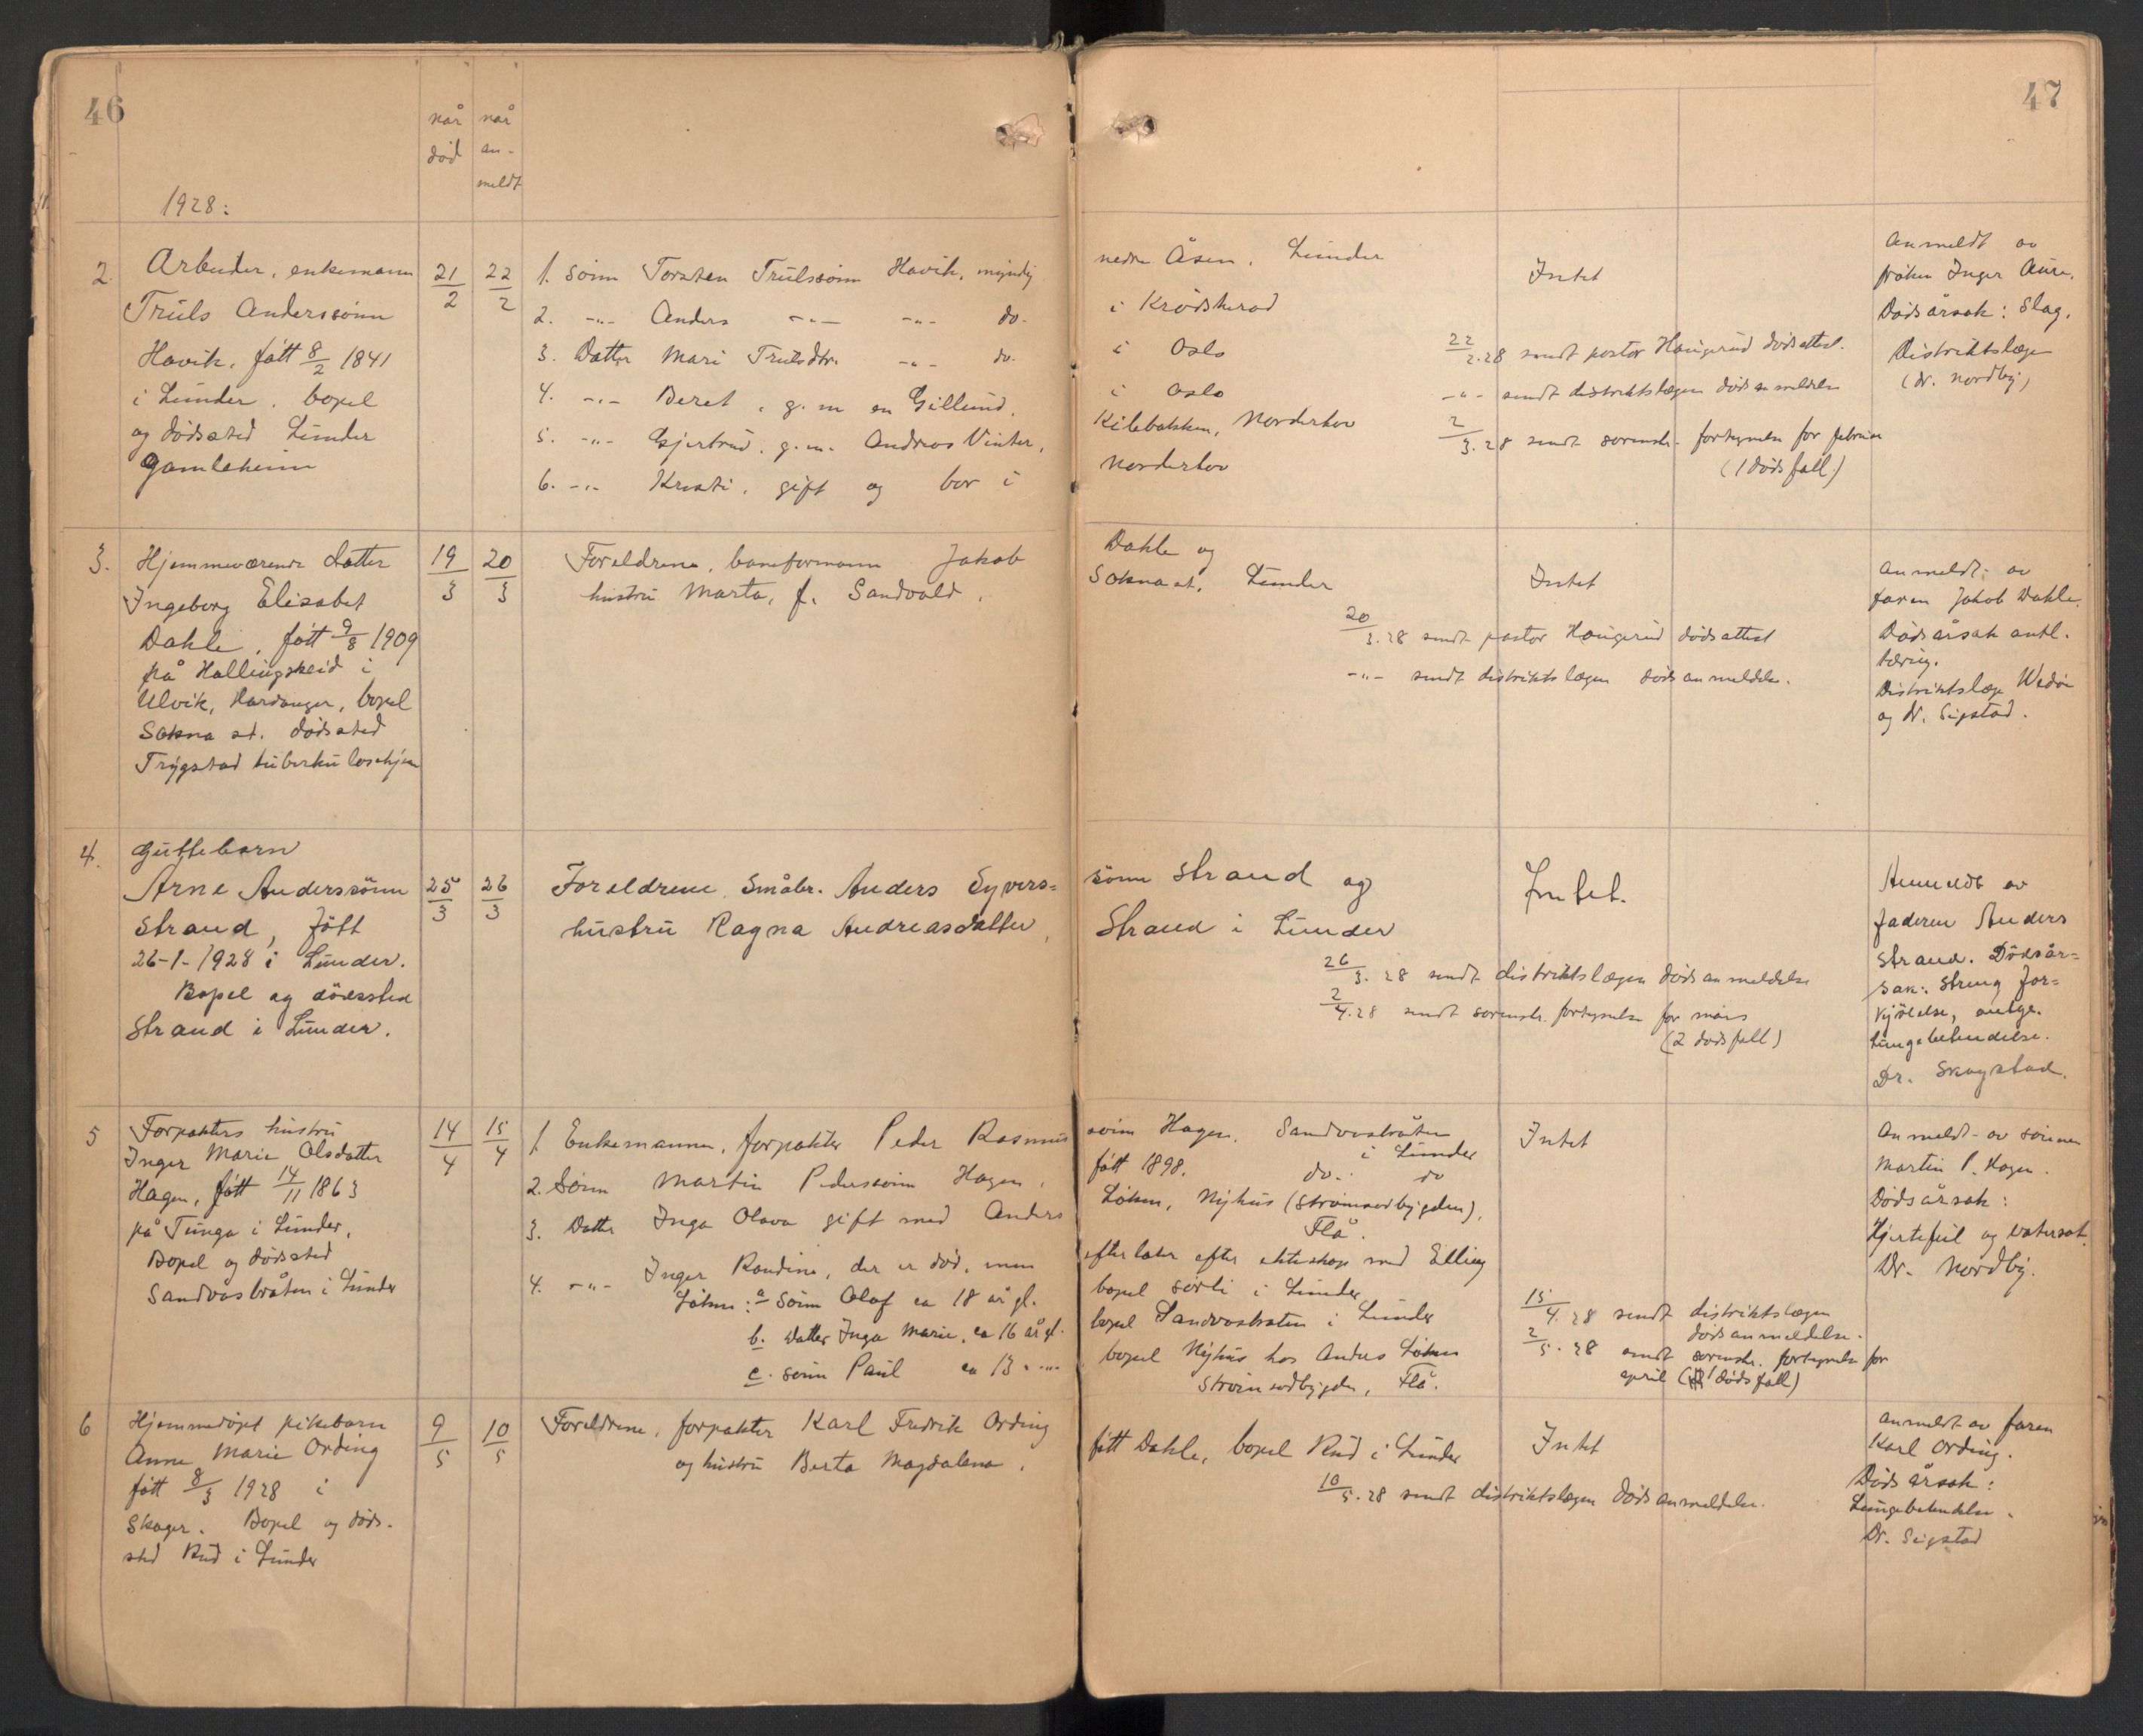 46
når når
død an-
meldt
1928:
2. Arbeider, enkemann
Truls Anderssønn
Havik, født 8/2 1841
i Lunder, bopel
og dødssted Lunder
Gamleheim
21/2
22/2
1. Sønn Torsten Trulssønn Havik, myndig
2. -"- Anders -"- -"- do-
3. Datter Mari Trulsdtr. -"- do-
4. -"- Beret, g.m en Gillund,
5. -"- Gjertrud, g.m. Andreas Vinter,
6. -"- Kristi, gift og bor i
3. Hjemmeværende datter
Ingeborg Elisabet
Dahle, født 9/8 1909
på Hallingskeid i
Ulvik, Hardanger, bopel
Sokna st. dødssted
Trygstad tuberkulosehjem
19/3
20/3
Foreldrene, baneformann Jakob
hustru Marta, f. Sandvold,
4. Guttebarn
Arne Anderssönn
Strand, född
26-1-1928 i Lunder.
Bopel og dödssted
Strand i Lunder.
25/3
26/3
Foreldrene Småbr. Anders Syvers=
hustru Ragna Andreasdatter,
5 Forpakters hustru
Inger Marie Olsdatter
Hagen, født 14/11 1863
på Tunga i Lunder,
Bopel og dødssted
Sandvasbråten i Lunder
14/4
15/4
1. Enkemannen, forpakter Peder Rasmus
2. Sønn Martin Pederssønn Hagen,
3. Datter Inga Olava gift med Anders
4. -"- Inger Randine, der er død, men
Løken: a sønn Olaf ca 18 år gl.
b. datter Inga Marie, ca 16 år gl.
c. sønn Paul ca 13 -"-
6 Hjemmedøpt pikebarn
Anne Marie Ording
født 8/3 1928 i
Skoger. Bopel og døds-
sted Rud i Lunder
9/5
10/5
Foreldrene, forpakter Karl Fredrik Ording
og hustru Berta Magdalena,
47
nedre Åsen, Lunder
i Krødsherad
i Oslo
i Oslo
Kilebakken, Norderhov
Norderhov
Intet
22/2.28 sendt pastor Haugerud dødsattest.
-"- sendt distriktslægen dødsanmeldelse
2/3.28 sendt sorenskr. fortegnelse for februar
(1 dødsfall)
Anmeldt av
frøken Inger Aure.
Dødsårsak: Slag.
Distriktslæge
(dr. Nordby)
Dahle og
Sokna st. Lunder
Intet
20/3.28 sendt pastor Haugerud dødsattest
-"- sendt distriktslægen dødsanmeldelse.
Anmeldt av
faren Jakob Dahle.
Dødsårsak antl.
tæring.
Distriktslæge
og dr. Sigstad.
sönn Strand og
Strand i Lunder
Intet.
26/3.28 sendt distriktslægen dødsanmeldelse
2/4.28 sendt sorenskr. fortegnelse for mars
(2 dødsfall)
Anmeldt av
faderen Anders
Strand. Dödsår=
sak: Streng for=
kjölelse, antge.
Lungebetendelse.
Dr. Skogstad.
sønn Hagen, Sandvasbråten
i Lunder
født 1898. do. do
Løken, Nyhus (Strømsodbygden),
Flå.
efterlater efter ekteskap med Elling
bopel Sørli i Lunder
bopel Sandvasbråten i Lunder
bopel Nyhus hos Anders Løken
Strømsodbygden, Flå.
Intet
15/4.28 sendt distriktslægen
dødsanmeldelse.
2/5.28 sendt sorenskr. fortegnelse for
april (1 dødsfall)
Anmeldt av sønnen
Martin P. Hagen.
Dødsårsak:
Hjertefeil og vatersot.
Dr. Nordby.
født Dahle, bopel Rud i Lunder
Intet
10/5.28 sendt distriktslægen dødsanmeldelse.
Anmeldt av faren
Karl Ording.
Dødsårsak:
Lungebetendelse.
Dr. Sigstad